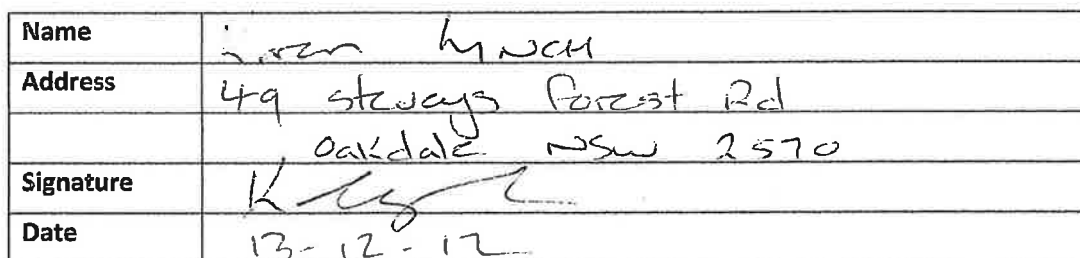 Name LYNCH
Address 49 steveys Forest Rd
Oakdale NSW 2570
Signature
Date 13-12-12